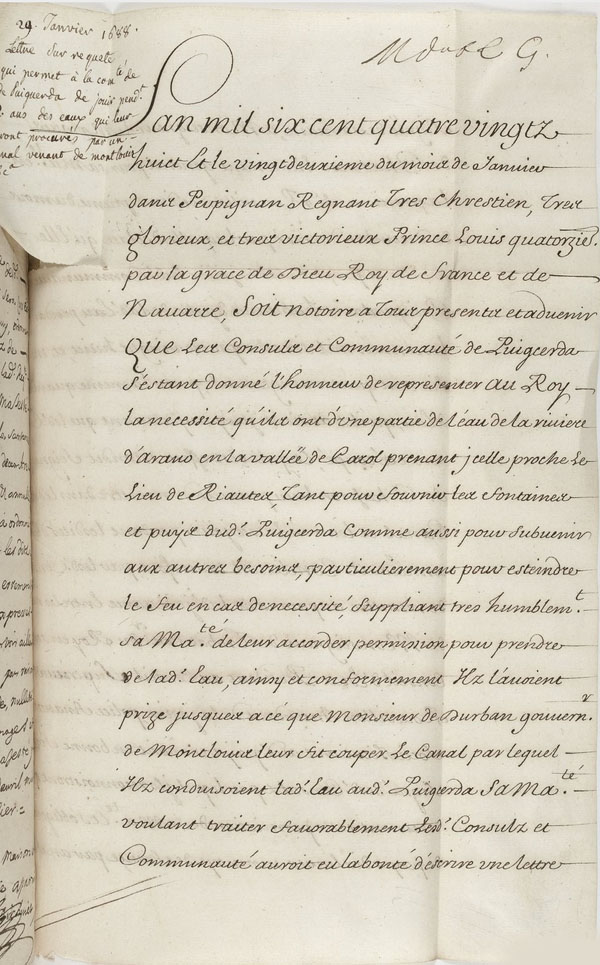 29 Janvier 1688.
Lettre sur requete
qui permet à la com.té de
de Puiguerda de jouir pend.t
ans des eaux qui leur
seront procurés par un
canal venant de montlouis
M double G.
Lan mil six cent quatre vingtz
huict Et le vingtdeuxieme du mois de Janvier
dans Perpignan Regnant Tres Chrestien, Tres
glorieux, et tres victorieux Prince Louis quatorzie.
par la grace de Dieu Roy de france et de
Navarre, Soit notoire a Tous presents et advenir
Que Les Consuls et Communauté de Puigcerda
s'estant donné l'honneur de representer au Roy
la necessité qu'ils ont d'vne partie de l'éau de la riviere
d'aravo en la vallée de Carol prenant jcelle proche Le
Lieu de Riautes, Tant pour fournir les fontaines
et puys dud.t Puigcerda Comme aussi pour subuenir
aux autres besoins, particulierement pour esteindre
le feu en cas de necessité, Suppliant tres humblem.t
sa Ma.té de leur accorder permission pour prendre
de lad.t Eau, ainsy et conformement Ilz l'avoient
prize jusques a cé que Monsieur de Durban gouvern.r
de Montlouis leur fit couper Le Canal par lequel
Ilz conduisoient lad.t Eau aud.t Puigcerda Sa Ma.té
voulant traiter favorablement Lesd.t Consulz et
Communauté auroit eu la bonté d'escrire vne lettre